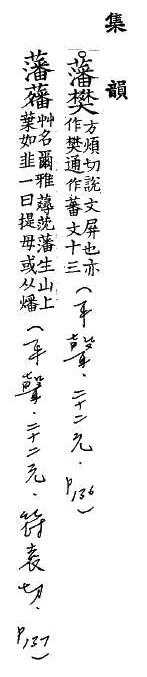 集韻
藩樊方煩切說文屏也亦作樊通作蕃文十三(平聲.二十二元.P136)
藩䕰艸名爾雅薚莐藩生山上葉如韭一曰提母或从燔(平聲.二十二元.符袁切.P137)